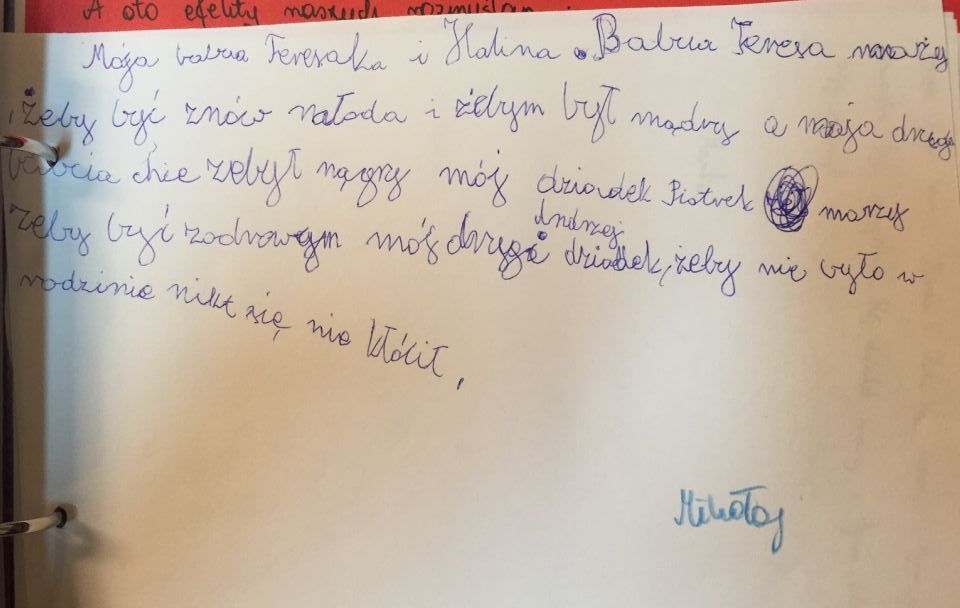 A oto efekty naszych rozmyślań :
Moja babcia Teresaka i Halina. Babcia Teresa marzy
, żeby być znów młoda i żebym był mądry a moja druga
babcia chie zebył mądry mój dziadek Piotrek marzy
żeby być zodrowym mój drugi Andrzej dziadek, żeby nie było w
rodzinie nikt się nie kłócił,
Mikołaj